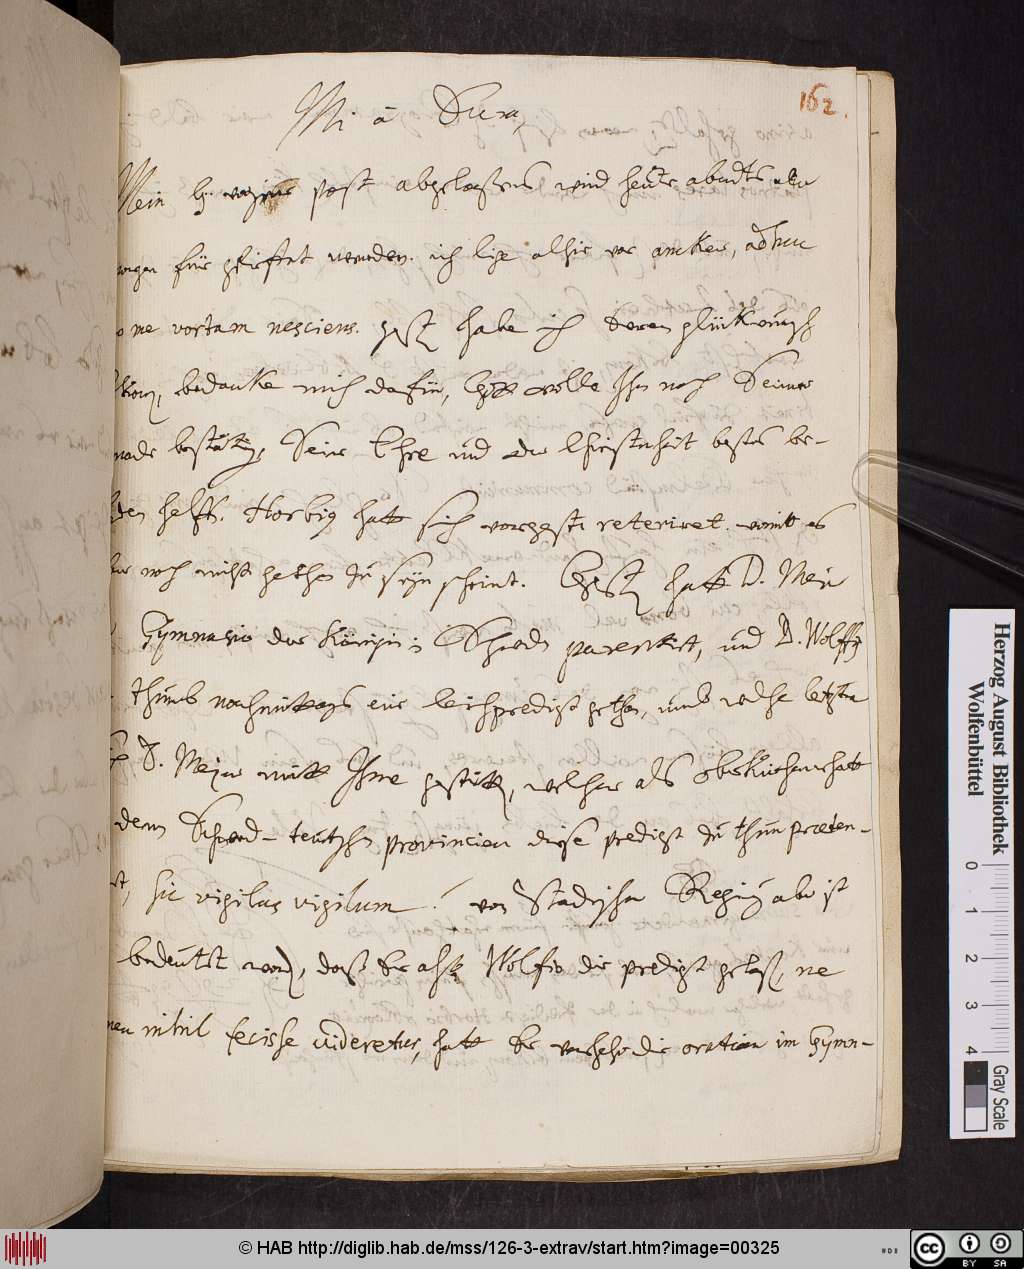 162.
Mi â Dura,
Mein h. vorige post abgelassens wird heute abendts oder
morgen für gestifftet werden. ich lige alhie vor ancker, adhuc
me vortam nesciens. gest. habe ich deren glückwunsch
bedancke mich dafür, Gott wolle Ihn nach Seiner
nade bestätig. Seine Ehre und der Christenheit bestes be-
den helff. Horbig hatt sich vorgest. reteriret. womit es
noch nicht gethan zu seyn scheint. Gest. hatt D. Meyer
Gymnasio der Königin in Schweden parentirt, und D. Wolff
thumb nachmittags eine leichpredigt gethan, umb welche letztere
D. Meyer mitt Ihme gestritt, welcher als oberkirchenrhatt
denn Schwed- teutschen provincien diese predigt zu thun præten-
sic vigilas vigilum! von Stadischer Regirung aber ist
bedeutet word, daß Er alß Wolfio die predigt gelaß, ne
nihil fecisse videretur, hatt Er vorhehr die oration im Gymn-
Herzog August Bibliothek
Wolfenbüttel
0 1 2 3 4
Gray Scale
© HAB http://diglib.hab.de/mss/126-3-extrav/start.htm?image=00325
cc BY SA